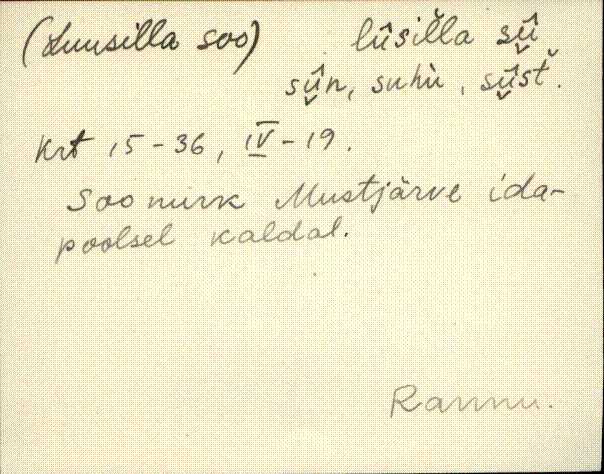 (Luusilla soo) lûsiľla sû̬
sû̬n, suhù, sû̬st̆.
Krt 15-36, IV-19.
Soo nurk Mustjärve ida-
poolsel kaldal.
Rannu.